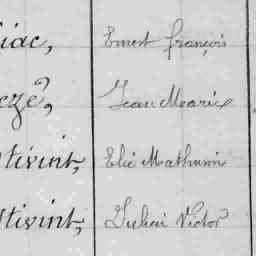 iac, Ernest françois
czé, Jean Marie
tivint, Elie Mathurin
tivint, Victor